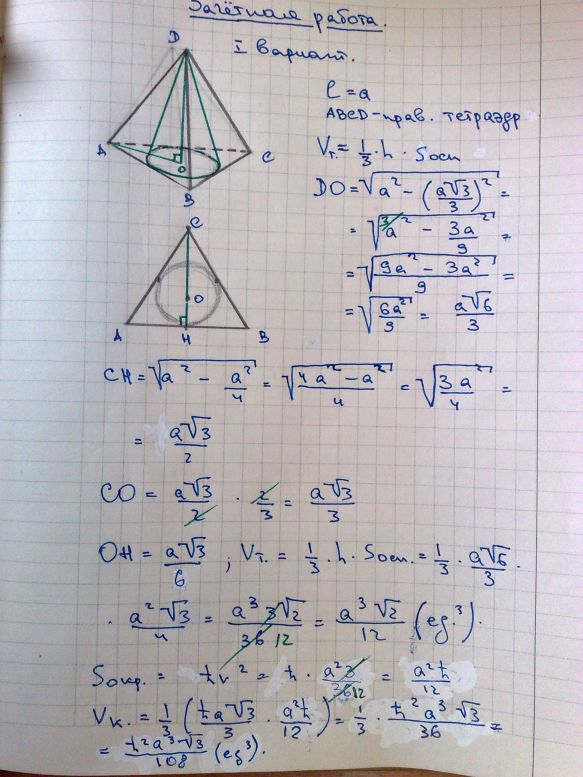 Зачётная работа.
I вариант.
D
A
O
C
B
l = a
ABCD - прав. тетраэдр
Vт. = 1/3 · h · Sосн
DO = √(a² - (a√3/3)²) =
= √(³a² - 3a²/9) =
= √((9a² - 3a²)/9) =
= √(6a²/9) = a√6/3
C
O
A
H
B
CH = √(a² - a²/4) = √((4a² - a²)/4) = √(3a²/4) =
= a√3/2
CO = a√3/2 · 2/3 = a√3/3
OH = a√3/6 ; Vт. = 1/3 · h · Sосн. = 1/3 · a√6/3 ·
· a²√3/4 = a³3√2/36 12 = a³√2/12 (ед.³).
Sокр. = πr² = π · a²3/36 12 = a²π/12
Vк. = 1/3 (πa√3/3 · a²π/12) = 1/3 · π²a³√3/36 =
= π²a³√3/108 (ед³).